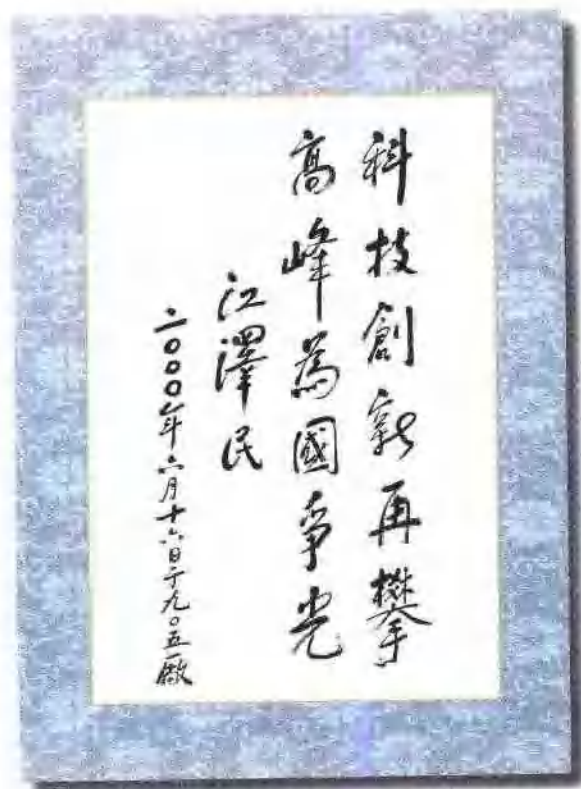 科技創新再攀
高峰為國爭光
江澤民
二〇〇〇年六月十六日于九〇五廠